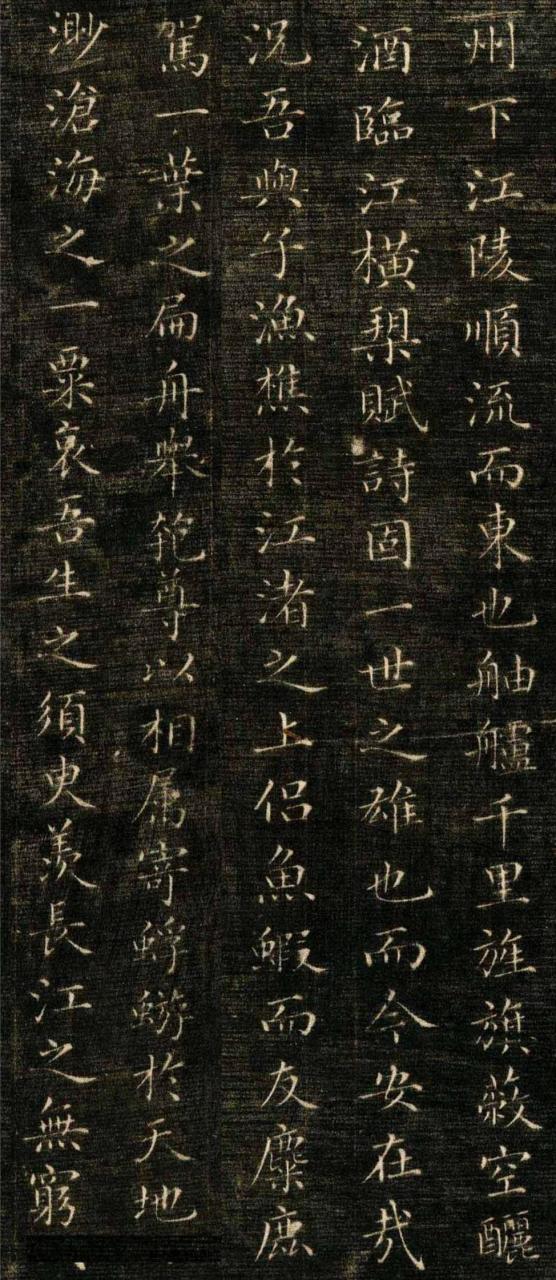 州下江陵順流而東也舳艫千里旌旗蔽空釃
酒臨江橫槊賦詩固一世之雄也而今安在哉
況吾與子漁樵於江渚之上侶魚鰕而友麋鹿
駕一葉之扁舟舉匏尊以相属寄蜉蝣於天地
渺滄海之一粟哀吾生之須臾羨長江之無窮